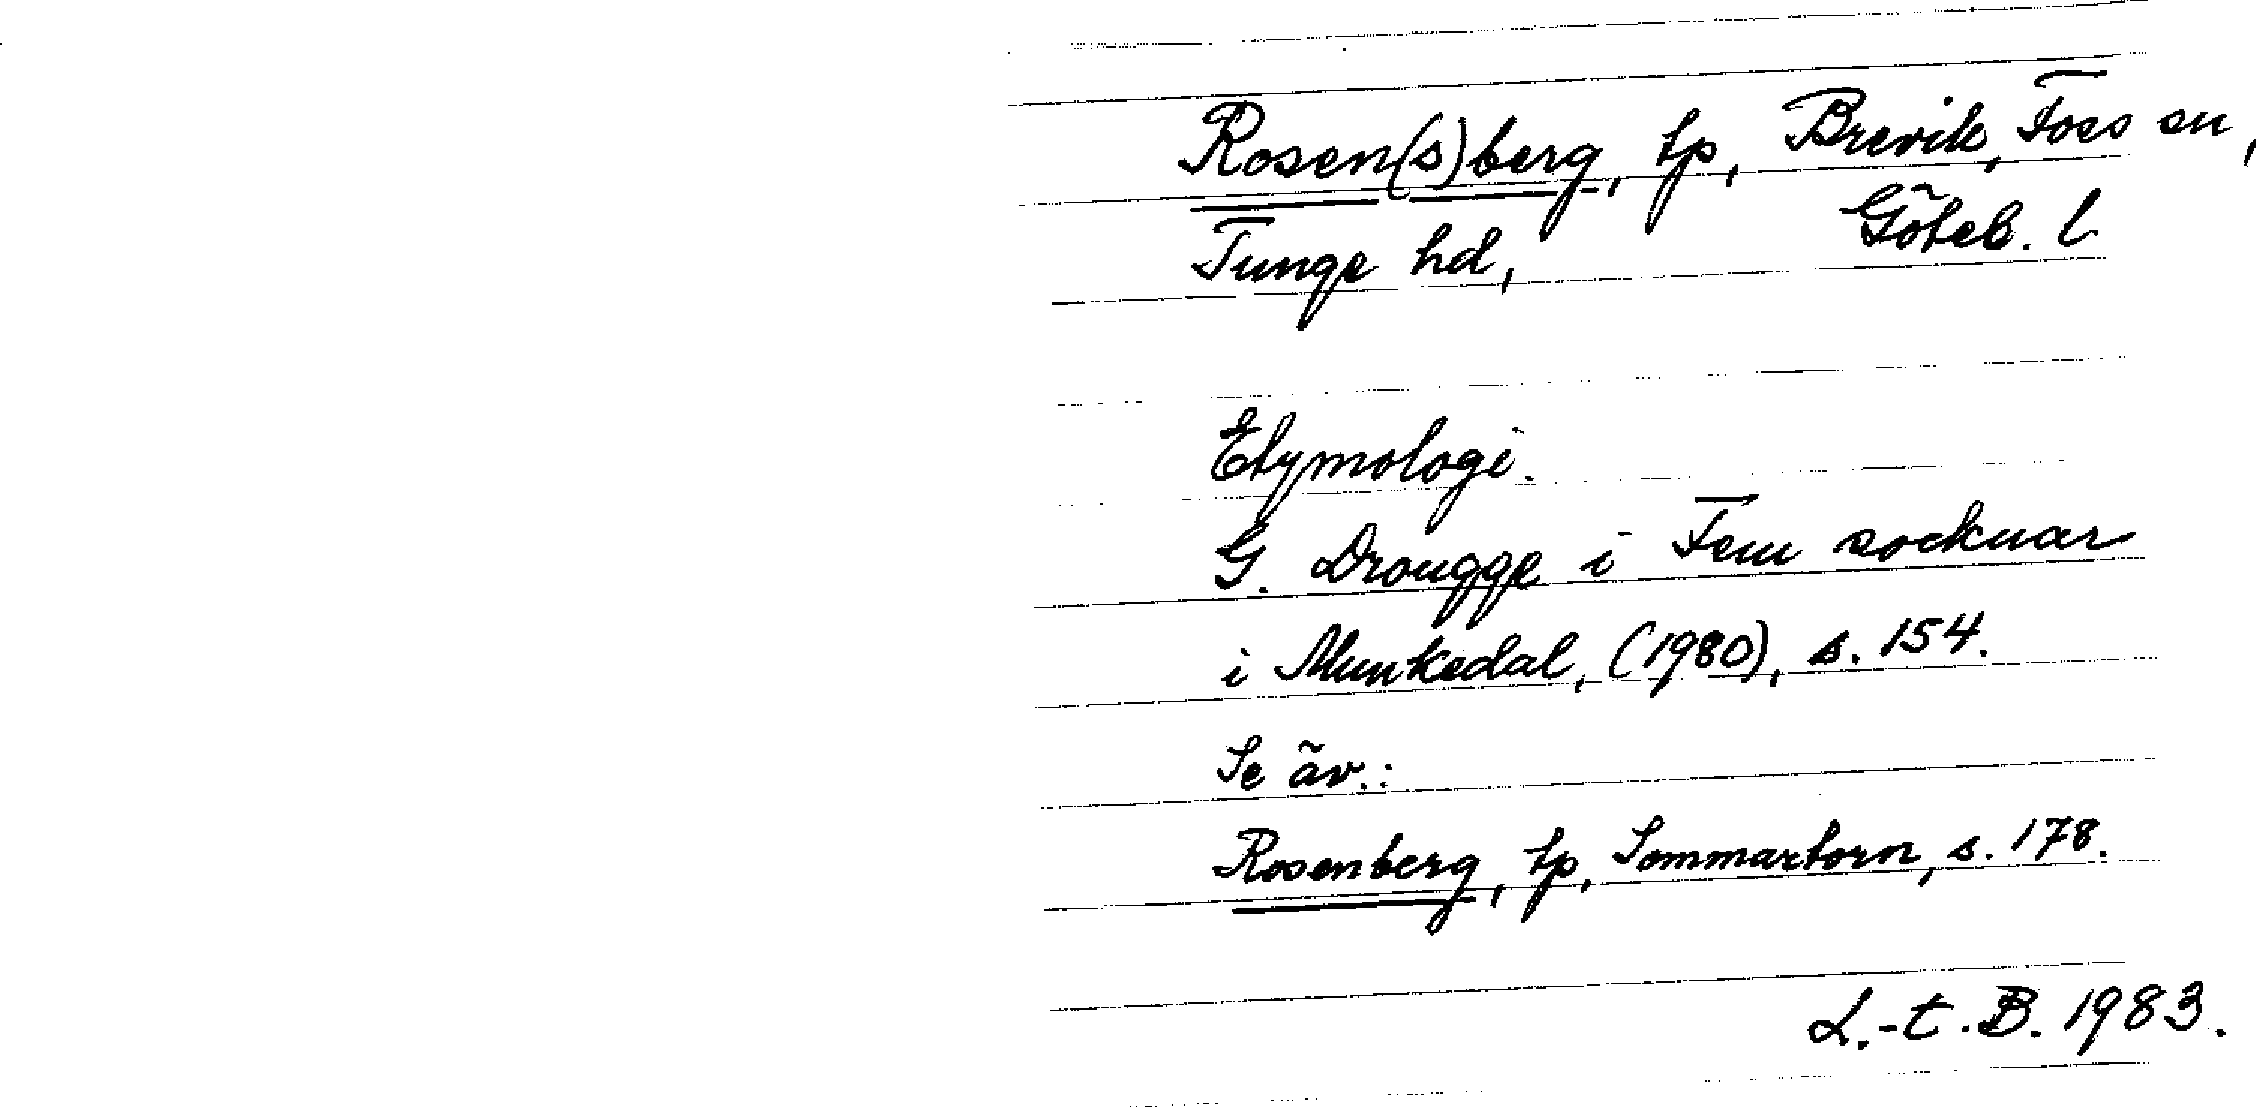 Rosen(s)berg, tp, Brevik, Foss sn,
Tunge hd, Göteb. l
Etymologi.
G. Drougge i Fem socknar
i Munkedal, (1980), s. 154.
Se äv.:
Rosenberg, tp, Sommartorn, s. 178.
L.-t. B. 1983.